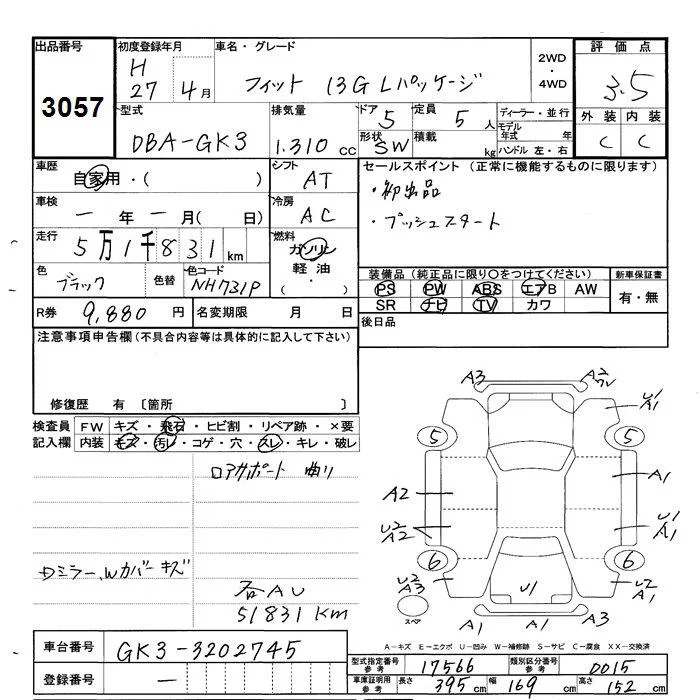 出品番号
3057
初度登録年月
H
27 4月
車名・グレード
フィット 13G Lパッケージ
2WD
・
4WD
評価点
3.5
外装 内装
C C
型式
DBA-GK3
排気量
1.310 CC
ドア 5
形状 SW
定員 5 人
積載 kg
ディーラー・並行
モデル年式 年
ハンドル 左・右
車歴
自家用・( )
シフト
AT
セールスポイント (正常に機能するものに限ります)
・初出品
・プッシュスタート
車検
一 年 一 月( 日)
冷房
AC
走行
5万1千831 km
燃料
ガソリン
軽油
( ・ )
色
ブラック
色替
色コード
NH731P
装備品 (純正品に限り○をつけてください)
新車保証書
PS PW ABS エアB AW
有・無
SR ナビ TV カワ
R券 9,880 円
名変期限 月 日
後日品
注意事項申告欄 (不具合内容等は具体的に記入して下さい)
修復歴 有 〔箇所 〕
検査員
記入欄
FW キズ・飛石・ヒビ割・リペア跡・×要
内装 キズ・汚レ・コゲ・穴・スレ・キレ・破レ
ロアサポート 曲リ
Dミラー、Wカバーキズ
51831 KM
A3
A2
U1
A1
5
5
A2
A1
U2
A2
U1
A1
6
6
U2
A3
U1
U2
A1
スペア
A1
A1
A3
A-キズ E-エクボ U-凹み W-補修跡 S-サビ C-腐食 XX-交換済
車台番号 GK3-3202745
登録番号 一
型式指定番号 参考 17566
類別区分番号 参考 0015
車庫証明用 参考 長さ 395 cm 幅 169 cm 高さ 152 cm